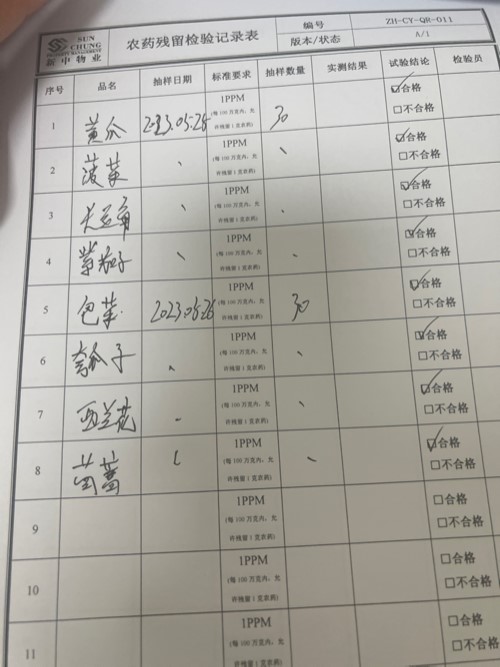 SUN CHUNG
PROPERTY MANAGEMENT
新中物业
农药残留检验记录表
编号
ZH-CY-QR-011
版本/状态
A/1
序号 品名 抽样日期 标准要求 抽样数量 实测结果 试验结论 检验员
1 黄瓜 2023.05.26 1PPM 30 ☑合格
(每100万克内,允
许残留1克农药) □不合格
2 菠菜 、 1PPM 、 ☑合格
(每100万克内,允
许残留1克农药) □不合格
3 、 1PPM 、 ☑合格
(每100万克内,允
许残留1克农药) □不合格
4 紫茄子 、 1PPM 、 ☑合格
(每100万克内,允
许残留1克农药) □不合格
5 包菜 2023.05.26 1PPM 30 ☑合格
(每100万克内,允
许残留1克农药) □不合格
6 、 1PPM 、 ☑合格
(每100万克内,允
许残留1克农药) □不合格
7 西兰花 - 1PPM 、 ☑合格
(每100万克内,允
许残留1克农药) □不合格
8 、 1PPM 、 ☑合格
(每100万克内,允
许残留1克农药) □不合格
9 1PPM □合格
(每100万克内,允
许残留1克农药) □不合格
10 1PPM □合格
(每100万克内,允
许残留1克农药) □不合格
11 1PPM □合格
(每100万克内,允
□不合格